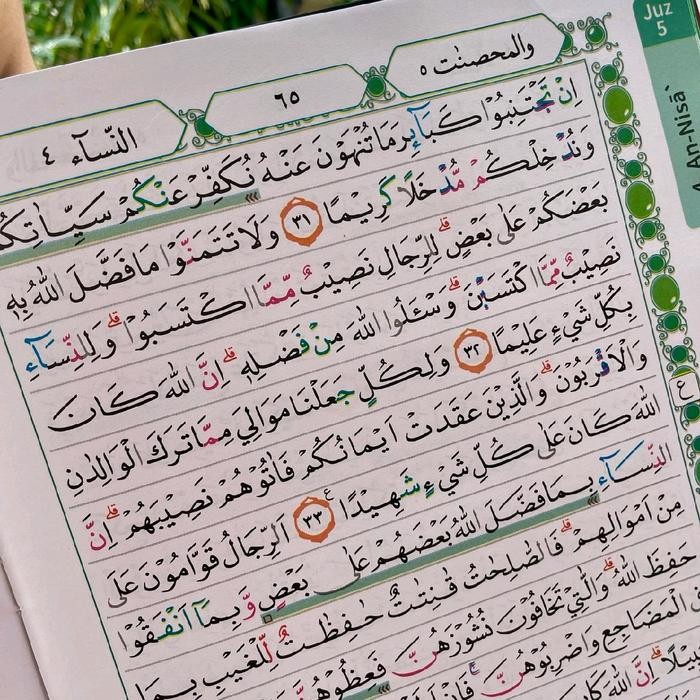 Juz
5
An-Nisā'
والمحصنت ٥
٦٥
النّسآء ٤
اِنْ تَجْتَنِبُوْا كَبَاۤىِٕرَ مَا تُنْهَوْنَ عَنْهُ نُكَفِّرْ عَنْكُمْ سَيِّاٰتِكُمْ
وَنُدْخِلْكُمْ مُّدْخَلًا كَرِيْمًا ٣١ وَلَا تَتَمَنَّوْا مَا فَضَّلَ اللّٰهُ بِهٖ
بَعْضَكُمْ عَلٰى بَعْضٍۗ لِلرِّجَالِ نَصِيْبٌ مِّمَّا اكْتَسَبُوْاۗ وَلِلنِّسَاۤءِ
نَصِيْبٌ مِّمَّا اكْتَسَبْنَۗ وَسْـَٔلُوا اللّٰهَ مِنْ فَضْلِهٖۗ اِنَّ اللّٰهَ كَانَ
بِكُلِّ شَيْءٍ عَلِيْمًا ٣٢ وَلِكُلٍّ جَعَلْنَا مَوَالِيَ مِمَّا تَرَكَ الْوَالِدٰنِ
وَالْاَقْرَبُوْنَۗ وَالَّذِيْنَ عَقَدَتْ اَيْمَانُكُمْ فَاٰتُوْهُمْ نَصِيْبَهُمْۗ اِنَّ
اللّٰهَ كَانَ عَلٰى كُلِّ شَيْءٍ شَهِيْدًا ٣٣ ع اَلرِّجَالُ قَوَّامُوْنَ عَلَى
النِّسَاۤءِ بِمَا فَضَّلَ اللّٰهُ بَعْضَهُمْ عَلٰى بَعْضٍ وَّبِمَآ اَنْفَقُوْا
مِنْ اَمْوَالِهِمْۗ فَالصّٰلِحٰتُ قٰنِتٰتٌ حٰفِظٰتٌ لِّلْغَيْبِ بِمَا
حَفِظَ اللّٰهُۗ وَالّٰتِيْ تَخَافُوْنَ نُشُوْزَهُنَّ فَعِظُوْهُنَّ
الْمَضَاجِعِ وَاضْرِبُوْهُنَّۚ فَاِنْ
اِنَّ اللّٰهَ كَانَ
ع